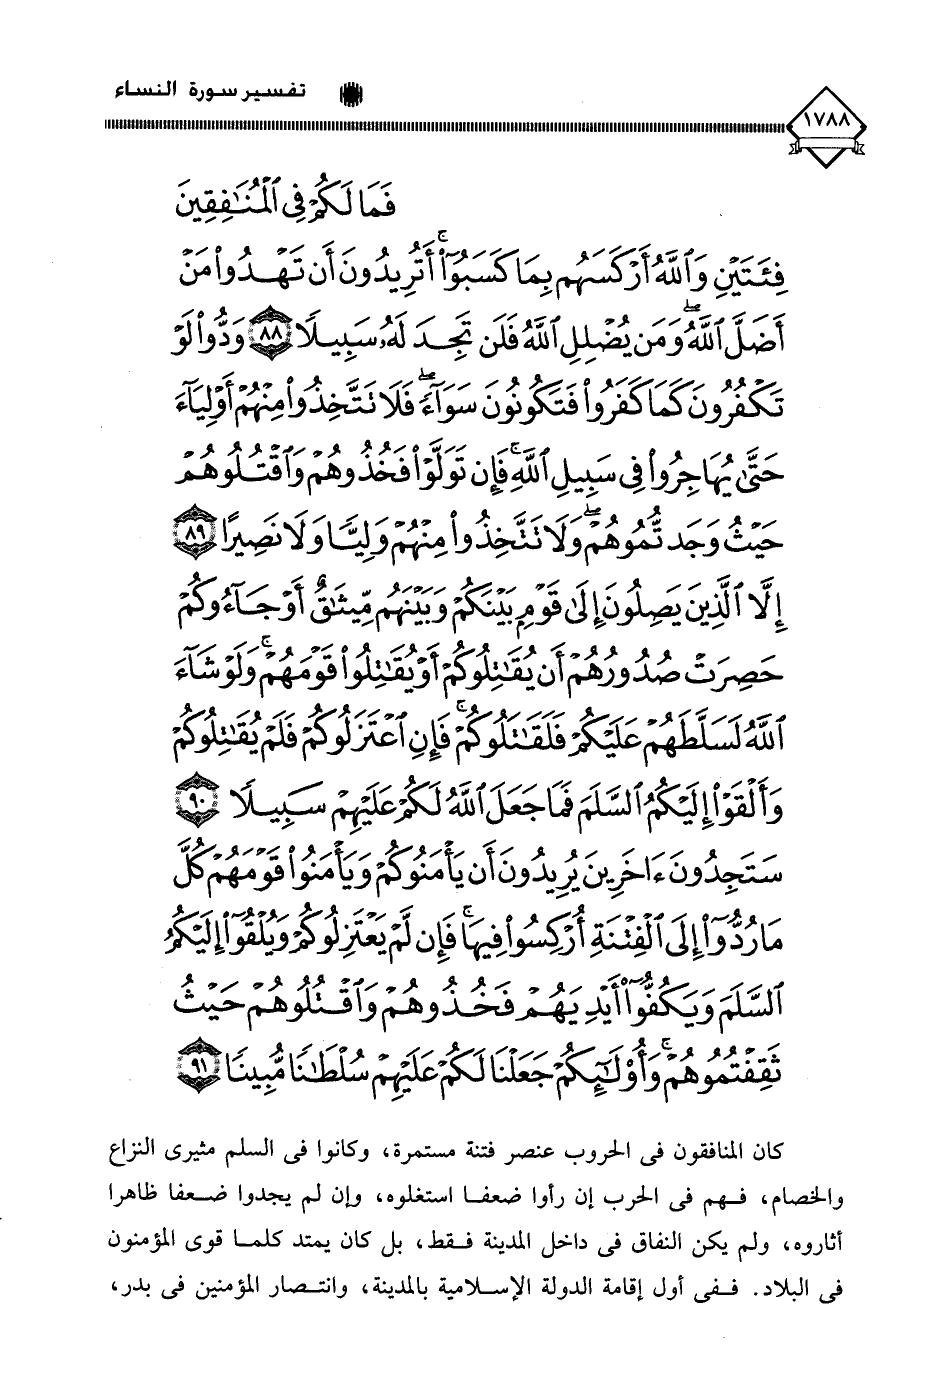 تفسير سورة النساء
١٧٨٨
فَمَا لَكُمْ فِى ٱلْمُنَٰفِقِينَ
فِئَتَيْنِ وَٱللَّهُ أَرْكَسَهُم بِمَا كَسَبُوٓا۟ ۚ أَتُرِيدُونَ أَن تَهْدُوا۟ مَنْ
أَضَلَّ ٱللَّهُ ۖ وَمَن يُضْلِلِ ٱللَّهُ فَلَن تَجِدَ لَهُۥ سَبِيلًا ٨٨ وَدُّوا۟ لَوْ
تَكْفُرُونَ كَمَا كَفَرُوا۟ فَتَكُونُونَ سَوَآءً ۖ فَلَا تَتَّخِذُوا۟ مِنْهُمْ أَوْلِيَآءَ
حَتَّىٰ يُهَاجِرُوا۟ فِى سَبِيلِ ٱللَّهِ ۚ فَإِن تَوَلَّوْا۟ فَخُذُوهُمْ وَٱقْتُلُوهُمْ
حَيْثُ وَجَدتُّمُوهُمْ ۖ وَلَا تَتَّخِذُوا۟ مِنْهُمْ وَلِيًّا وَلَا نَصِيرًا ٨٩
إِلَّا ٱلَّذِينَ يَصِلُونَ إِلَىٰ قَوْمٍۭ بَيْنَكُمْ وَبَيْنَهُم مِّيثَٰقٌ أَوْ جَآءُوكُمْ
حَصِرَتْ صُدُورُهُمْ أَن يُقَٰتِلُوكُمْ أَوْ يُقَٰتِلُوا۟ قَوْمَهُمْ ۚ وَلَوْ شَآءَ
ٱللَّهُ لَسَلَّطَهُمْ عَلَيْكُمْ فَلَقَٰتَلُوكُمْ ۚ فَإِنِ ٱعْتَزَلُوكُمْ فَلَمْ يُقَٰتِلُوكُمْ
وَأَلْقَوْا۟ إِلَيْكُمُ ٱلسَّلَمَ فَمَا جَعَلَ ٱللَّهُ لَكُمْ عَلَيْهِمْ سَبِيلًا ٩٠
سَتَجِدُونَ ءَاخَرِينَ يُرِيدُونَ أَن يَأْمَنُوكُمْ وَيَأْمَنُوا۟ قَوْمَهُمْ كُلَّ
مَا رُدُّوٓا۟ إِلَى ٱلْفِتْنَةِ أُرْكِسُوا۟ فِيهَا ۚ فَإِن لَّمْ يَعْتَزِلُوكُمْ وَيُلْقُوٓا۟ إِلَيْكُمُ
ٱلسَّلَمَ وَيَكُفُّوٓا۟ أَيْدِيَهُمْ فَخُذُوهُمْ وَٱقْتُلُوهُمْ حَيْثُ
ثَقِفْتُمُوهُمْ ۚ وَأُو۟لَٰٓئِكُمْ جَعَلْنَا لَكُمْ عَلَيْهِمْ سُلْطَٰنًا مُّبِينًا ٩١
كان المنافقون فى الحروب عنصر فتنة مستمرة، وكانوا فى السلم مثيرى النزاع
والخصام، فهم فى الحرب إن رأوا ضعفا استغلوه، وإن لم يجدوا ضعفا ظاهرا
أثاروه، ولم يكن النفاق فى داخل المدينة فقط، بل كان يمتد كلما قوى المؤمنون
فى البلاد. ففى أول إقامة الدولة الإسلامية بالمدينة، وانتصار المؤمنين فى بدر،